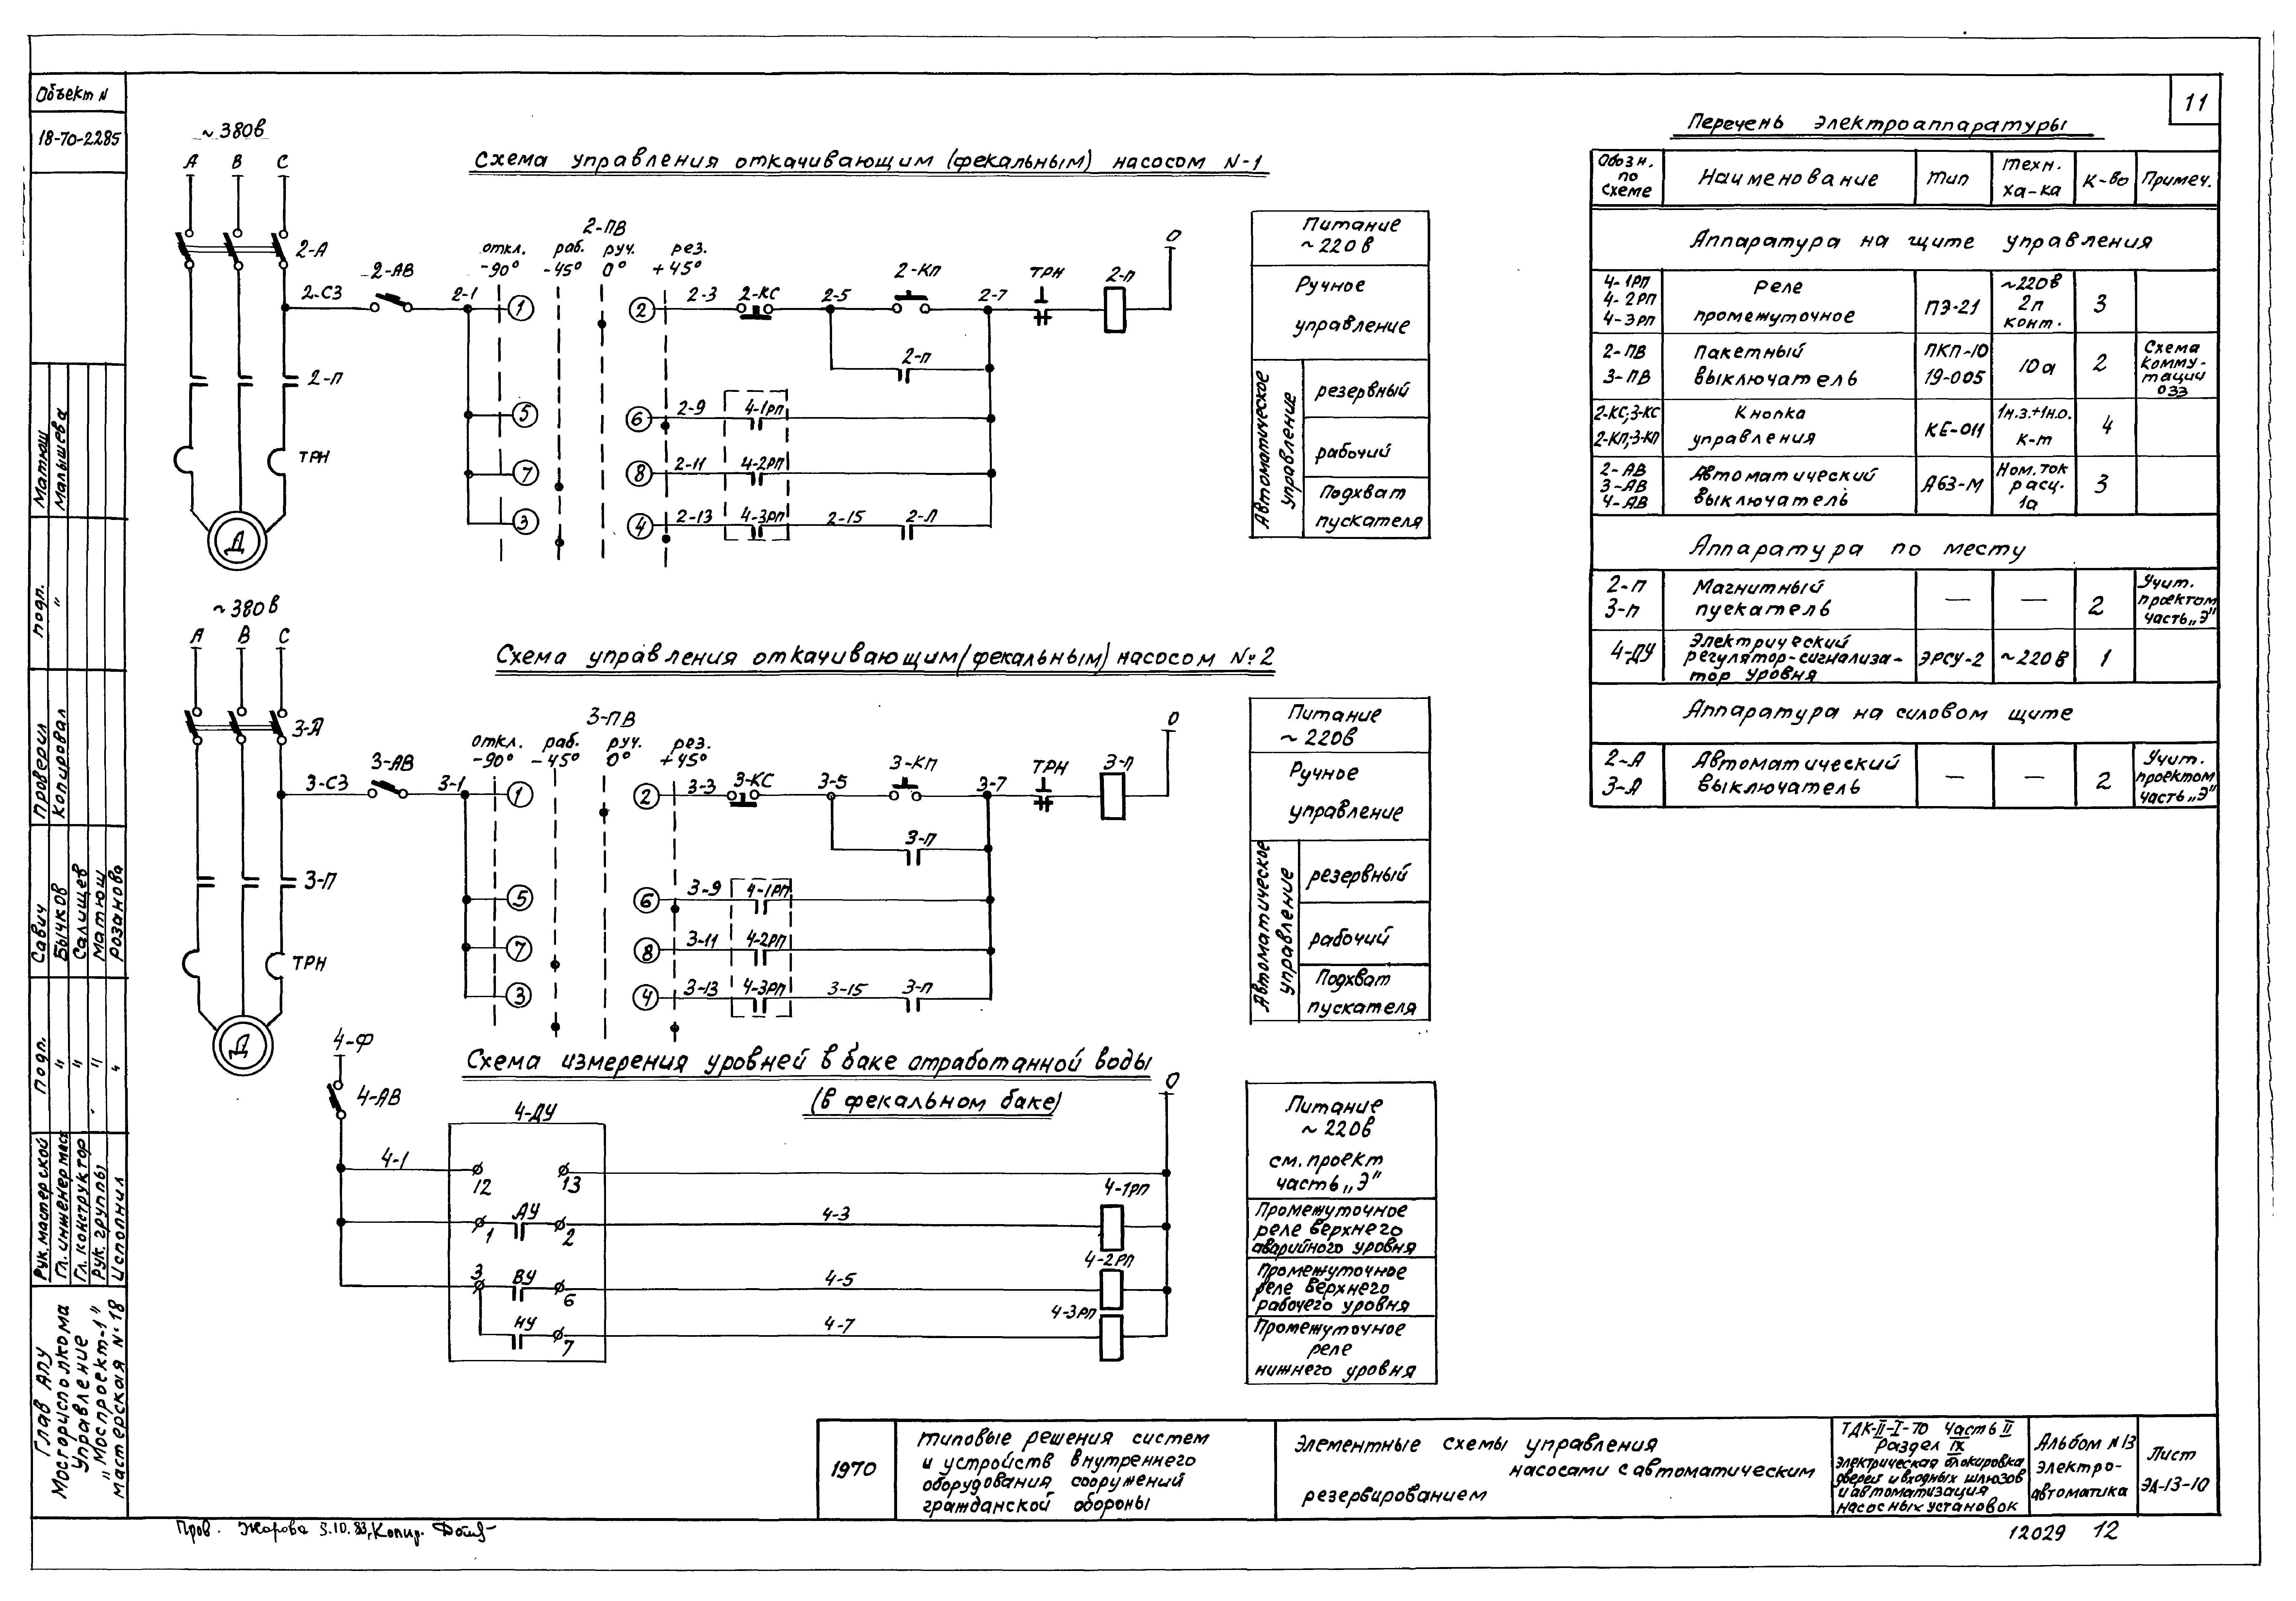 11
Объект N
18-70-2285
~380в
А В С
2-А
2-С3
2-АВ
2-1
2-П
ТРН
Д
Схема управления откачивающим (фекальным) насосом N-1
2-ПВ
откл. раб. руч. рез.
-90° -45° 0° +45°
1 2 2-3 2-КС 2-5 2-КП 2-7 ТРН 2-П 0
2-П
5 6 2-9 4-1РП
7 8 2-11 4-2РП
3 4 2-13 4-3РП 2-15 2-П
Питание
~220в
Ручное
управление
Автоматическое
управление
резервный
рабочий
Подхват
пускателя
~380в
А В С
3-А
3-С3
3-АВ
3-1
3-П
ТРН
Д
Схема управления откачивающим (фекальным) насосом №2
3-ПВ
откл. раб. руч. рез.
-90° -45° 0° +45°
1 2 3-3 3-КС 3-5 3-КП 3-7 ТРН 3-П 0
3-П
5 6 3-9 4-1РП
7 8 3-11 4-2РП
3 4 3-13 4-3РП 3-15 3-П
Питание
~220в
Ручное
управление
Автоматическое
управление
резервный
рабочий
Подхват
пускателя
Схема измерения уровней в баке отработанной воды
(в фекальном баке)
4-Ф
4-АВ
4-ДУ
0
4-1
12 13
4-1РП
1 АУ 2 4-3
4-2РП
3 ВУ 6 4-5
4-3РП
НУ 7 4-7
Питание
~220в
см. проект
часть „Э"
Промежуточное
реле верхнего
аварийного уровня
Промежуточное
реле верхнего
рабочего уровня
Промежуточное
реле
нижнего уровня
Перечень электроаппаратуры
Обозн. по схеме Наименование Тип Техн. ха-ка К-во Примеч.
Аппаратура на щите управления
4-1РП 4-2РП 4-3РП Реле промежуточное ПЭ-21 ~220в 2п конт. 3
2-ПВ 3-ПВ Пакетный выключатель ПКП-10 19-005 10а 2 Схема коммутации 033
2-КС; 3-КС 2-КП; 3-КП Кнопка управления КЕ-011 1н.з.+1н.о. к-т 4
2-АВ 3-АВ 4-АВ Автоматический выключатель А63-М Ном. ток расц. 1а 3
Аппаратура по месту
2-П 3-П Магнитный пускатель — — 2 Учит. проектом часть „Э"
4-ДУ Электрический регулятор-сигнализатор уровня ЭРСУ-2 ~220в 1
Аппаратура на силовом щите
2-А 3-А Автоматический выключатель — — 2 Учит. проектом часть „Э"
Матюш
Малышева
Подп.
"
Проверил
Копировал
Савич
Бычков
Салищев
Матюш
Розанова
Подп.
" " " "
Рук. мастерской
Гл. инженер маст
Гл. конструктор
Рук. группы
Исполнил
Глав АПУ
Мосгорисполкома
Управление
„Моспроект-1"
мастерская N° 18
1970
типовые решения систем
и устройств внутреннего
оборудования сооружений
гражданской обороны
Элементные схемы управления
насосами с автоматическим
резервированием
ТДК-II-I-70 Часть II
Раздел IX
Электрическая блокировка
дверей и входных шлюзов
и автоматизация
насосных установок
Альбом N13
Электро-
автоматика
Лист
ЭА-13-10
Пров. Жарова 5.10.83, Копир.
12029 12